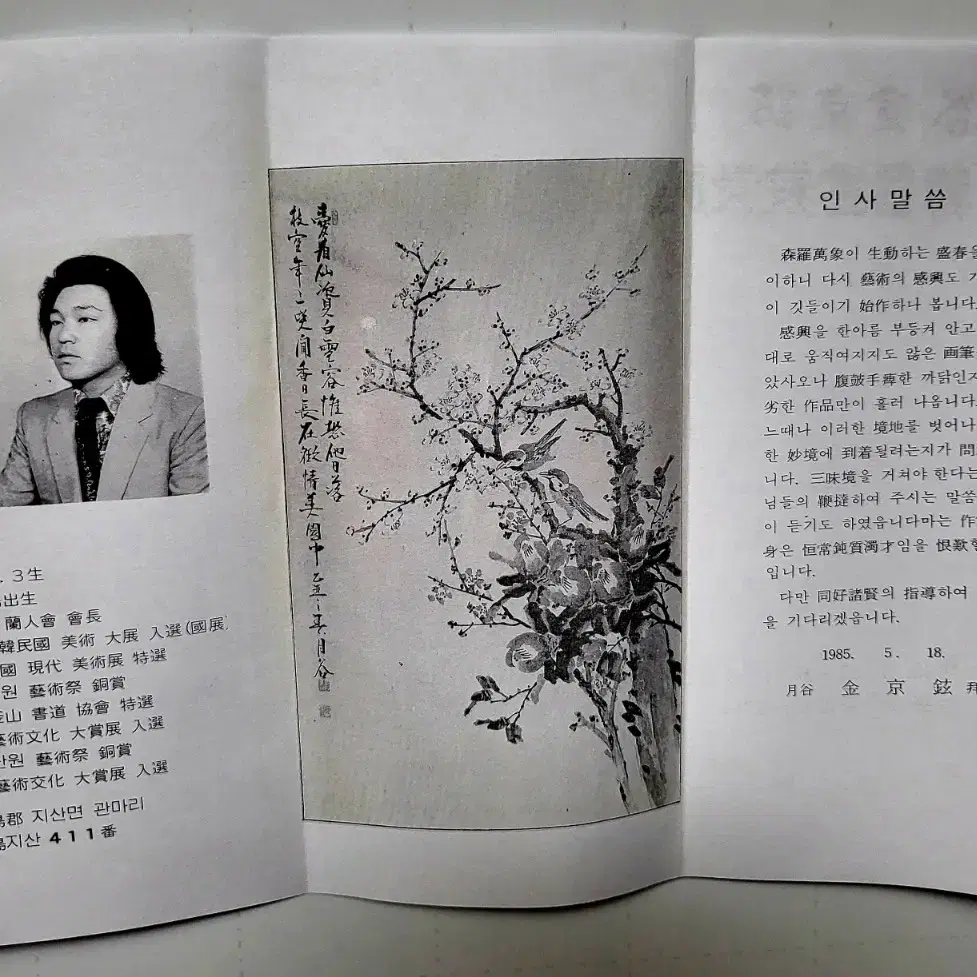 . 3生
出生
蘭人會 會長
韓民國 美術 大展 入選(國展)
國 現代 美術展 特選
원 藝術祭 銅賞
釜山 書道 協會 特選
藝術文化 大賞展 入選
단원 藝術祭 銅賞
藝術文化 大賞展 入選
島郡 지산면 관마리
島지산 411番
愛看仙資白雪容惟愁僭落
枝空年二咲聞香日長在微情美園中
月谷
인사말씀
森羅萬象이 生動하는 盛春을
이하니 다시 藝術의 感興도 기
이 깃들이기 始作하나 봅니다.
感興을 한아름 부등켜 안고
대로 움직여지지도 않은 画筆
았사오나 腹皷手痺한 까닭인지
劣한 作品만이 흘러 나옵니다.
느때나 이러한 境地를 벗어나
한 妙境에 到着될려는지가 問
니다. 三昧境을 거쳐야 한다는
님들의 鞭撻하여 주시는 말씀
이 듣기도 하였읍니다마는 作
身은 恒常鈍質濁才임을 恨歎할
입니다.
다만 同好諸賢의 指導하여
을 기다리겠읍니다.
1985. 5. 18.
月谷 金京鉉 拜